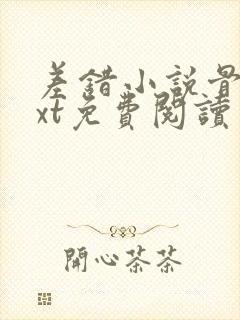 差錯小說骨
xt免費閱讀
開心茶茶